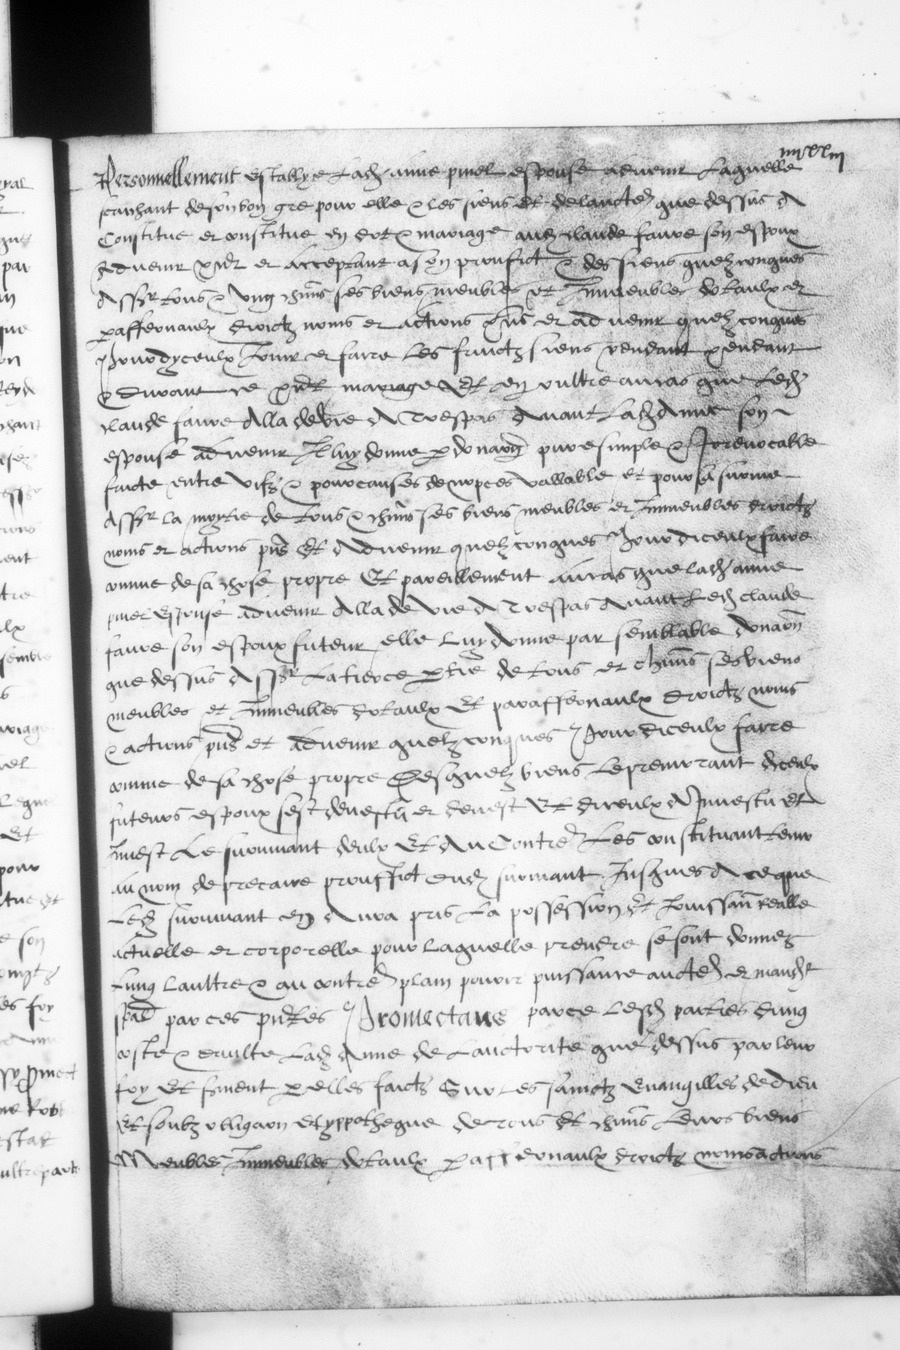 iiiixxiii
Personnellement establye lad anne pinel espouse advenir laquelle
scaichant de son bon gre pour elle & les siens Et de lauctte que dessus A
Constitue et constitue en dot & mariage aud claude faure son espoux
advenir pnt et acceptant a son prouffict & des siens quelzconques
Assr tous & ung chuns ses biens meubles et Inmeubles dotaulx et
paraffernaulx droictz noms et actions pns et advenir quelzconques
Pour dyceulx Jouir et faire les fructz siens pendant
& durant ce pnt mariage Et en oultre au cas que led
claude faure Alla de vie A Trespas Avant lad Anne son
espouse advenir Il luy donne p donaon pure simple & Irrevocable
faicte entre vifz & pour causes de nopces vallable et pour sa survie
Assr la moytie de tous & chuns ses biens meubles et Inmeubles droictz
noms et actions pns Et Advenir quelzconques Pour diceulx faire
comme de sa chose propre Et pareillement au cas que lad anne
pinel espouse advenir Alla de vie A Trespas Avant led claude
faure son espoux futeur elle luy donne par semblable donaon
que dessus Assr la tierce ptie de tous et chuns ses biens
meubles et Inmeubles dotaulx Et paraffernaulx droictz noms
& actions pns et advenir quelzconques Pour diceulx faire
comme de sa chose propre Desquelz biens le premourant diceulx
futeurs espoux sest devestu et devest Et diceulx A Investu Et
Invest le survivant deulx Et Au Contre les constituant tenir
au nom de precaire prouffict dud survivant Jusques A ce que
Led survivant en Aura pris La possession Et Jouissan realle
actuelle et corporelle pour laquelle prendre se sont donnez
lung laultre & au contre plain pouvoir puissance auctte et mandt
spal par ces pntes Promectans parce lesd parties dung
coste & daultre Lad Anne de Lauctorite que dessus par leur
foy Et serment p elles faictz Sur les sainctz Evangilles de dieu
Et soubz obligaon Et yppotheque de tous Et chuns leurs biens
Meubles Inmeubles dotaulx paraffernaulx droictz noms actions